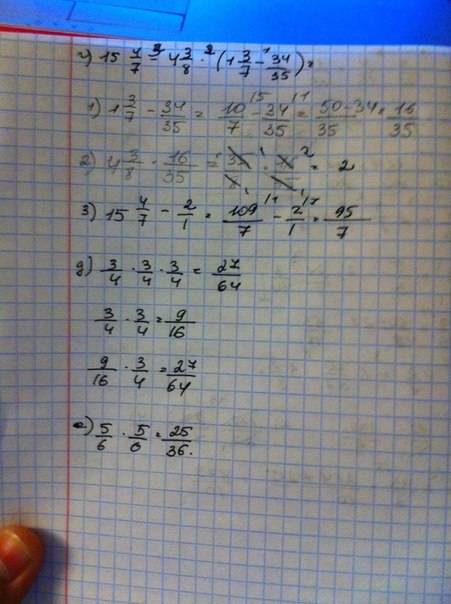 г) 15 4/7 -³ 4 3/8 ·² (1 3/7 -¹ 34/35) =
1) 1 3/7 - 34/35 = 10/7 /5 - 34/35 /1 = 50-34/35 = 16/35
2) 4 3/8 · 16/35 = 35/8 · 16/35 = 2
3) 15 4/7 - 2/1 = 109/7 /1 - 2/1 /7 = 95/7
д) 3/4 · 3/4 · 3/4 = 27/64
3/4 · 3/4 = 9/16
9/16 · 3/4 = 27/64
е) 5/6 · 5/6 = 25/36.